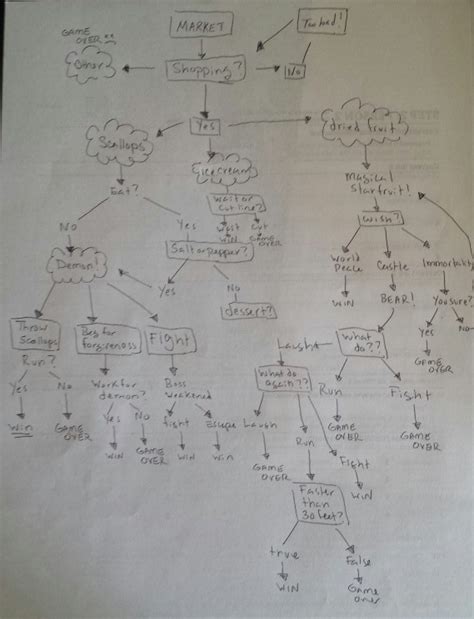 MARKET
Too bad!
GAME
OVER **
Other
Shopping?
No
Scallops
Yes
dried fruit
Icecream
Eat?
Wait or
Cut line?
Magical
Starfruit!
Wish?
No
Yes
Wait
WIN
Cut
GAME
OVER
Salt or pepper?
Demon!
Yes
No
dessert?
World
Peace
Castle
Immortality
WIN
BEAR!
You sure?
Yes
No
GAME
OVER
Throw
Scallops
Beg for
forgiveness
Fight
What
do??
Laugh
What do
again??
Run
Fight
Run?
Yes
No
Win
GAME
OVER
Work for
demon?
Yes
No
WIN
GAME
OVER
Boss
Weakened
fight
Escape
WIN
Win
Laugh
GAME
OVER
Run
Fight
WIN
GAME
OVER
GAME
OVER
Faster
than
30 feet?
true
False
WIN
Game
over